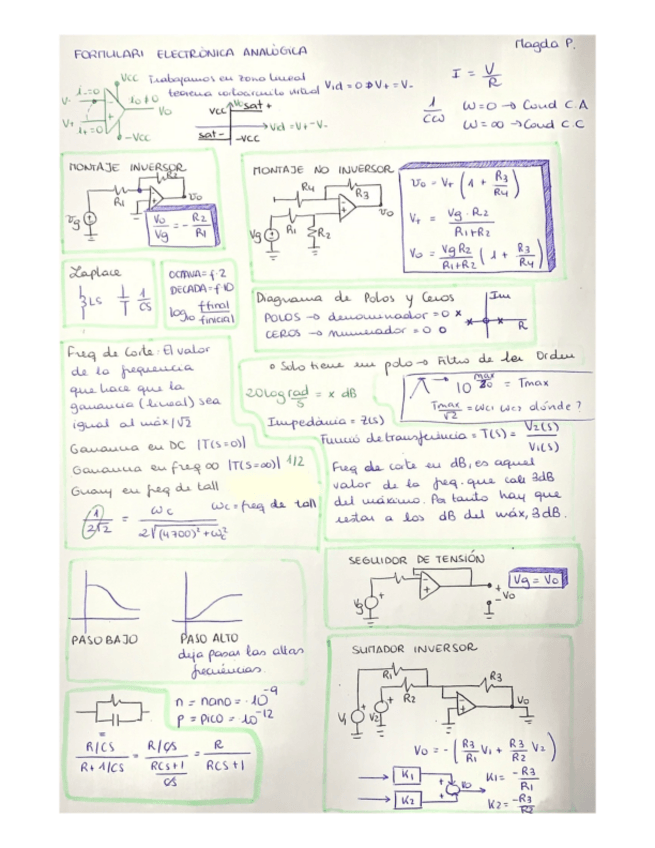 FORMULARI ELECTRÒNICA ANALÒGICA
Magda P.
Vcc
Trabajamos en zona lineal
teorema cortocircuito virtual Vid = 0 → V+ = V-
i-=0
V-
V+
i+=0
io ≠ 0
Vo
-Vcc
Vcc
Vo
sat +
sat-
-VCC
Vid = V+ - V-
I = V/R
1/CW
W=0 → Cond C.A
W=∞ → Cond C.C
MONTAJE INVERSOR
R2
R1
Vg
Vo
Vo/Vg = - R2/R1
MONTAJE NO INVERSOR
R4
R3
R1
R2
Vg
Vo
Vo = V+ (1 + R3/R4)
V+ = Vg · R2 / R1+R2
Vo = Vg R2 / R1+R2 (1 + R3/R4)
Laplace
LS
1/CS
OCTAVA = f·2
DECADA = f·10
log10 ffinal/finicial
Diagrama de Polos y Ceros
POLOS → denominador = 0 x
CEROS → numerador = 0 o
Im
R
Freq de Corte: El valor
de la frequencia
que hace que la
ganancia (lineal) sea
igual al máx/√2
Ganancia en DC |T(S=0)|
Ganancia en freq ∞ |T(S=∞)| 1/2
Guany en freq de tall
1/2√2 = Wc / 2√(4700)²+Wc²
Wc = freq de tall
• Solo tiene un polo → Filtro de 1er Orden
20 log rad/s = x dB
10 max/20 = Tmax
Tmax/√2 = Wc1 Wc2 dónde?
Impedància = Z(S)
Funció de transferència = T(S) = V2(S)/V1(S)
Freq de corte en dB, es aquel
valor de la freq. que cae 3dB
del máximo. Por tanto hay que
restar a los dB del máx, 3dB.
SEGUIDOR DE TENSIÓN
Vg
+
Vo
-
Vg = Vo
PASO BAJO
PASO ALTO
deja pasar las altas
frecuencias.
SUMADOR INVERSOR
R1
R2
R3
V1
V2
Vo
Vo = - (R3/R1 V1 + R3/R2 V2)
K1
K2
Vo
K1 = -R3/R1
K2 = -R3/R2
n = nano = ·10⁻⁹
p = pico = ·10⁻¹²
=
R/CS / R+1/CS = R/CS / RCS+1/CS = R / RCS+1